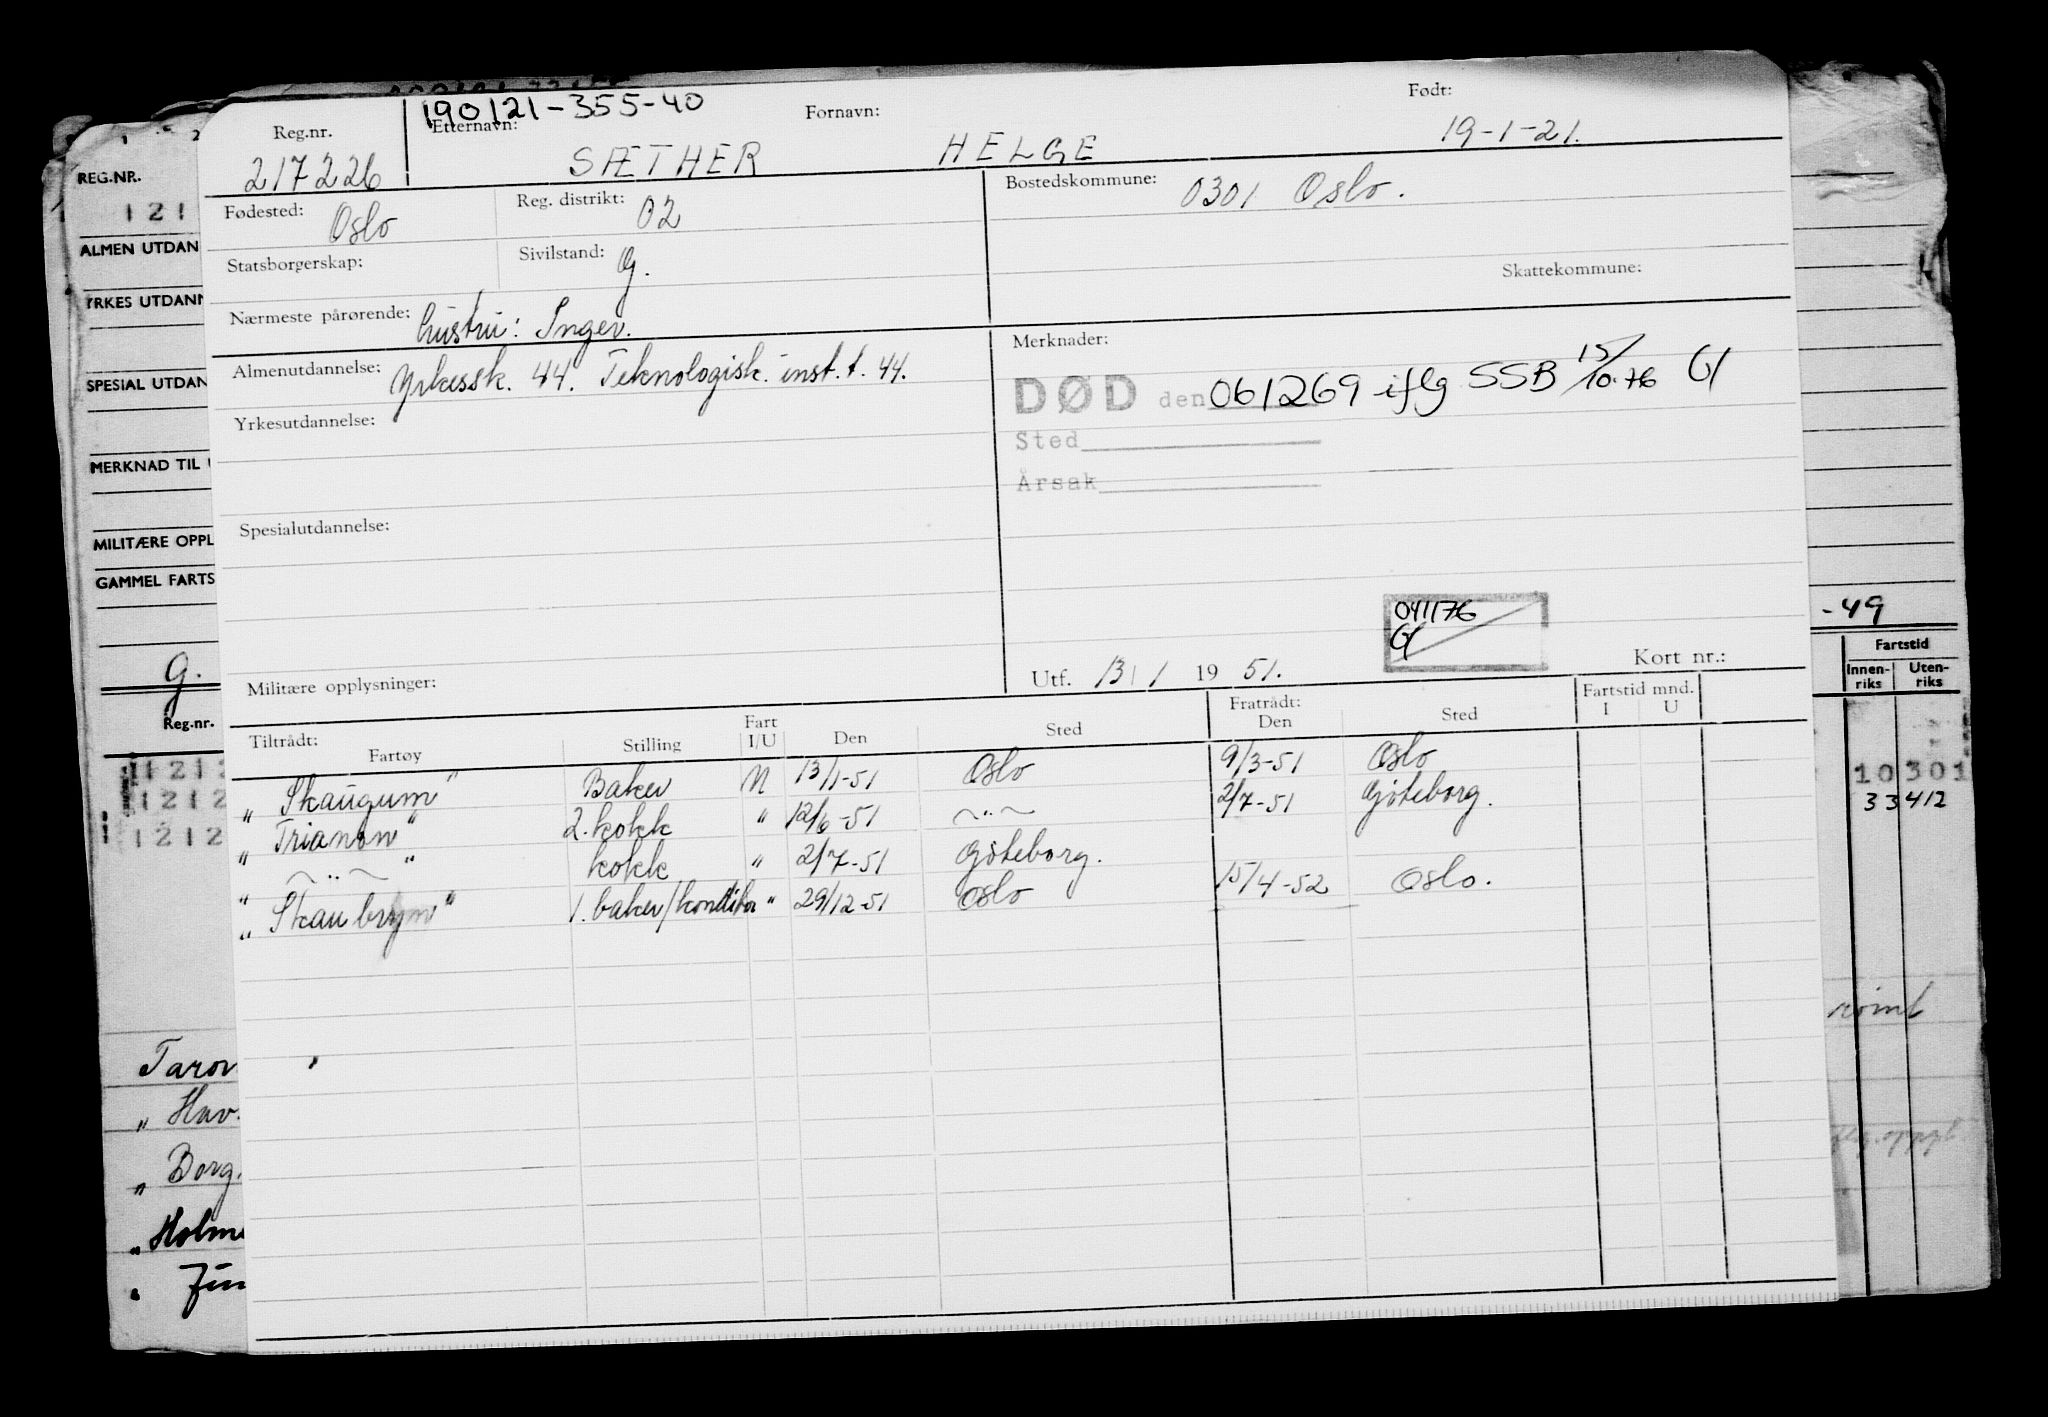 190121-355-40
Reg.nr. Etternavn: Fornavn: Født:
217226 SÆTHER HELGE 19-1-21.
Fødested: Oslo Reg. distrikt: 02 Bostedskommune: 0301 Oslo.
Statsborgerskap: Sivilstand: G. Skattekommune:
Nærmeste pårørende: hustru: Inger.
Almenutdannelse: Yrkessk. 44. Teknologisk. inst. t. 44.
Yrkesutdannelse:
Spesialutdannelse:
Militære opplysninger:
Merknader:
DØD den 061269 iflg SSB 15/10.76 G/
Sted
Årsak
041176
G/
Utf. 13/1 19 51. Kort nr.:
Tiltrådt: Fratrådt: Fartstid mnd.
Fartøy Stilling Fart I/U Den Sted Den Sted I U
" Skaugum " Baker N 13/1-51 Oslo 9/3-51 Oslo
" Trianon " 2. kokk " 12/6-51 ~"~ 2/7-51 Göteborg.
" ~"~ " kokk " 2/7-51 Göteborg.
" Skaubryn " 1. baker/konditor " 29/12-51 Oslo 15/4-52 Oslo.
1 2
REG.NR.
121
ALMEN UTDAN
YRKES UTDANN
SPESIAL UTDAN
MERKNAD TIL
MILITÆRE OPPL
GAMMEL FARTS
G.
Reg.nr.
1212
1212
1212
Taron
" Hav.
" Borg.
" Holm
-49
Fartstid
Innen-riks Uten-riks
10301
33412